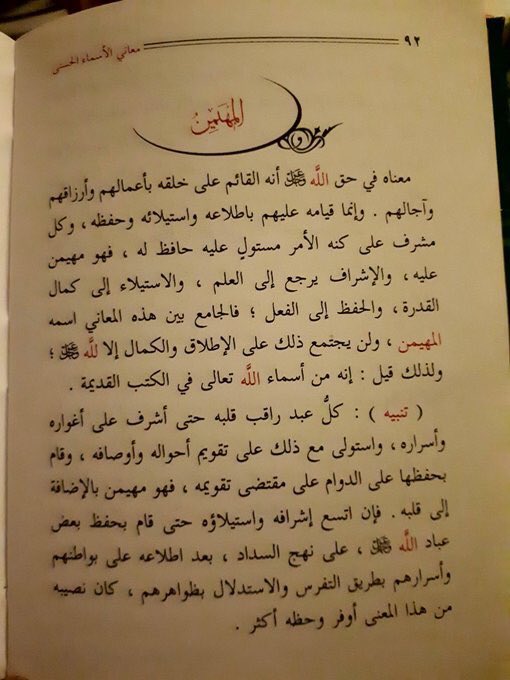 ٩٢
معاني الأسماء الحسنى
المهيمن
معناه في حق الله ﷿ أنه القائم على خلقه بأعمالهم وأرزاقهم
وآجالهم . وإنما قيامه عليهم باطلاعه واستيلائه وحفظه ، وكل
مشرف على كنه الأمر مستولٍ عليه حافظ له ، فهو مهيمن
عليه ، والإشراف يرجع إلى العلم ، والاستيلاء إلى كمال
القدرة ، والحفظ إلى الفعل ؛ فالجامع بين هذه المعاني اسمه
المهيمن ، ولن يجتمع ذلك على الإطلاق والكمال إلا لله ﷿ ؛
ولذلك قيل : إنه من أسماء الله تعالى في الكتب القديمة .
( تنبيه ) : كلُّ عبد راقب قلبه حتى أشرف على أغواره
وأسراره ، واستولى مع ذلك على تقويم أحواله وأوصافه ، وقام
بحفظها على الدوام على مقتضى تقويمه ، فهو مهيمن بالإضافة
إلى قلبه . فإن اتسع إشرافه واستيلاؤه حتى قام بحفظ بعض
عباد الله ﷿ ، على نهج السداد ، بعد اطلاعه على بواطنهم
وأسرارهم بطريق التفرس والاستدلال بظواهرهم ، كان نصيبه
من هذا المعنى أوفر وحظه أكثر .